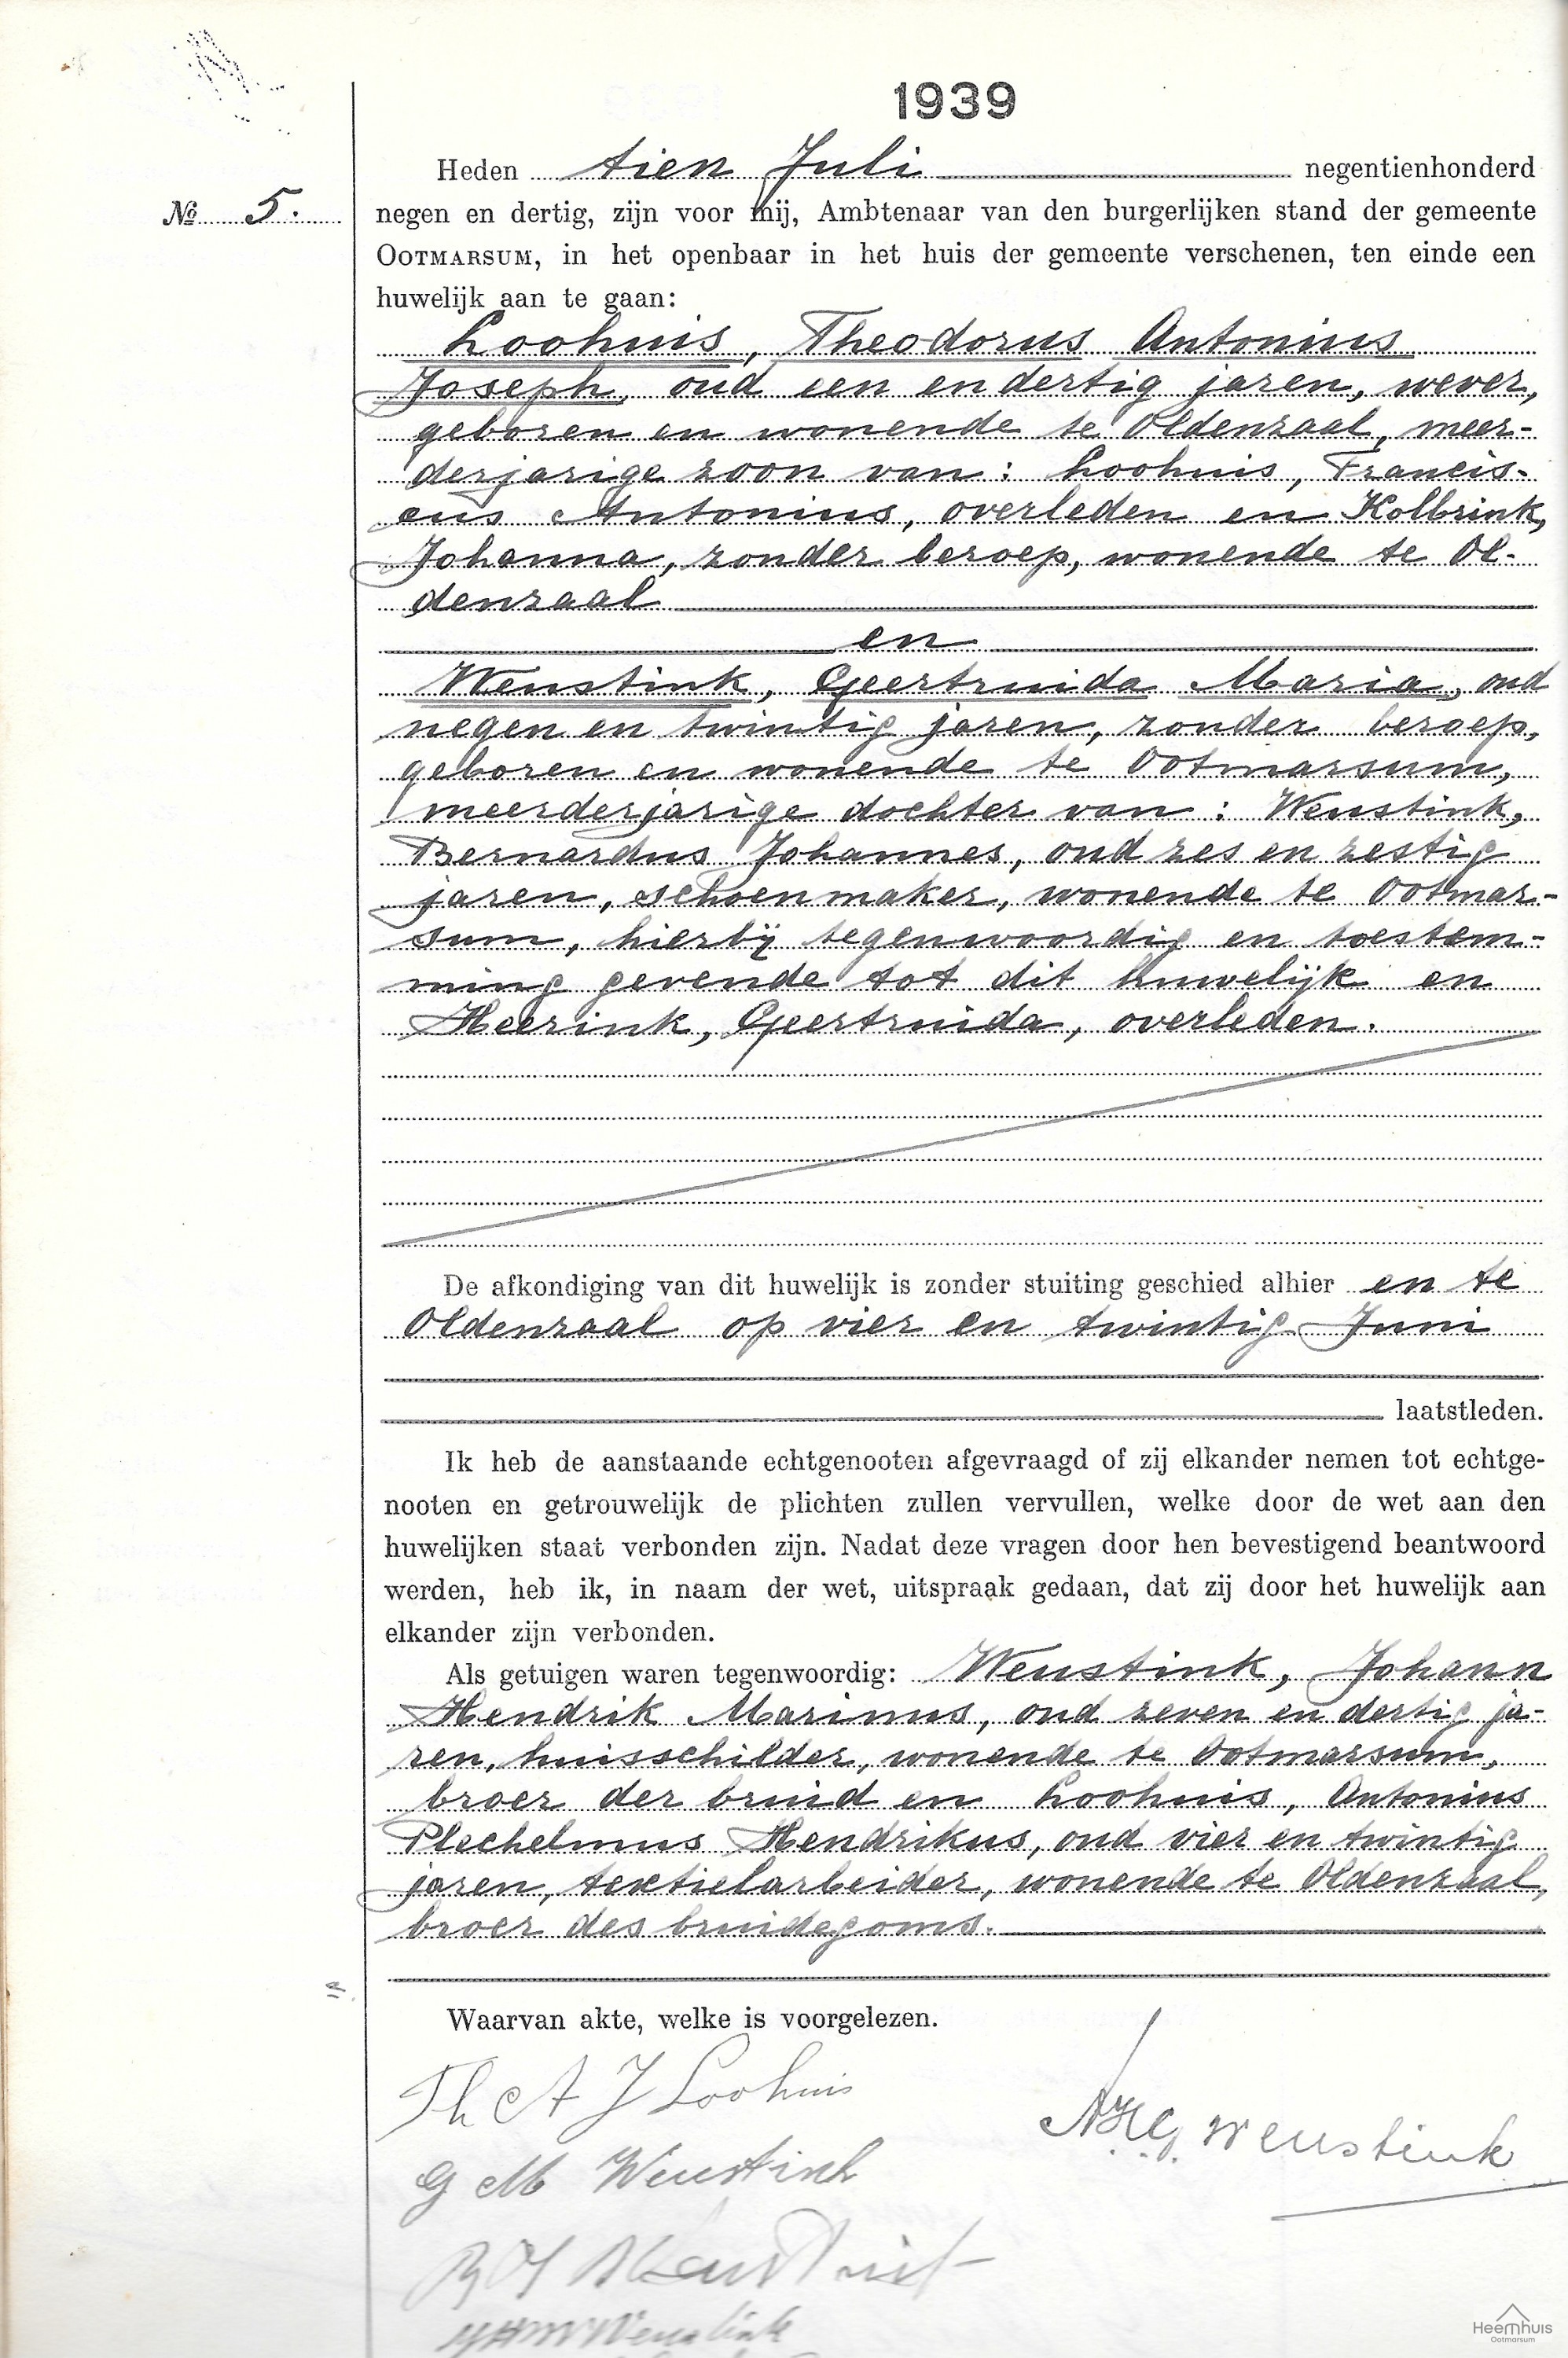 1939
Heden tien Juli negentienhonderd
No 5.
negen en dertig, zijn voor mij, Ambtenaar van den burgerlijken stand der gemeente
OOTMARSUM, in het openbaar in het huis der gemeente verschenen, ten einde een
huwelijk aan te gaan:
Loohuis, Theodorus Antonius
Joseph, oud een en dertig jaren, wever,
geboren en wonende te Oldenzaal, meer-
derjarige zoon van: Loohuis, Francis-
cus Antonius, overleden en Kolbrink,
Johanna, zonder beroep, wonende te Ol-
denzaal
en
Weustink, Geertruida Maria, oud
negen en twintig jaren, zonder beroep,
geboren en wonende te Ootmarsum,
meerderjarige dochter van: Weustink,
Bernardus Johannes, oud zes en zestig
jaren, schoenmaker, wonende te Ootmar-
sum, hierbij tegenwoordig en toestem-
ming gevende tot dit huwelijk en
Heerink, Geertruida, overleden.
De afkondiging van dit huwelijk is zonder stuiting geschied alhier en te
Oldenzaal op vier en twintig Juni
laatstleden.
Ik heb de aanstaande echtgenooten afgevraagd of zij elkander nemen tot echtge-
nooten en getrouwelijk de plichten zullen vervullen, welke door de wet aan den
huwelijken staat verbonden zijn. Nadat deze vragen door hen bevestigend beantwoord
werden, heb ik, in naam der wet, uitspraak gedaan, dat zij door het huwelijk aan
elkander zijn verbonden.
Als getuigen waren tegenwoordig: Weustink, Johann
Hendrik Marinus, oud zeven en dertig ja-
ren, huisschilder, wonende te Ootmarsum,
broer der bruid en Loohuis, Antonius
Plechelmus Hendrikus, oud vier en twintig
jaren, textielarbeider, wonende te Oldenzaal,
broer des bruidegoms.
Waarvan akte, welke is voorgelezen.
Th A J Loohuis
Weustink
G M Weustink
B J Weustink
Weustink
Heemhuis
Ootmarsum